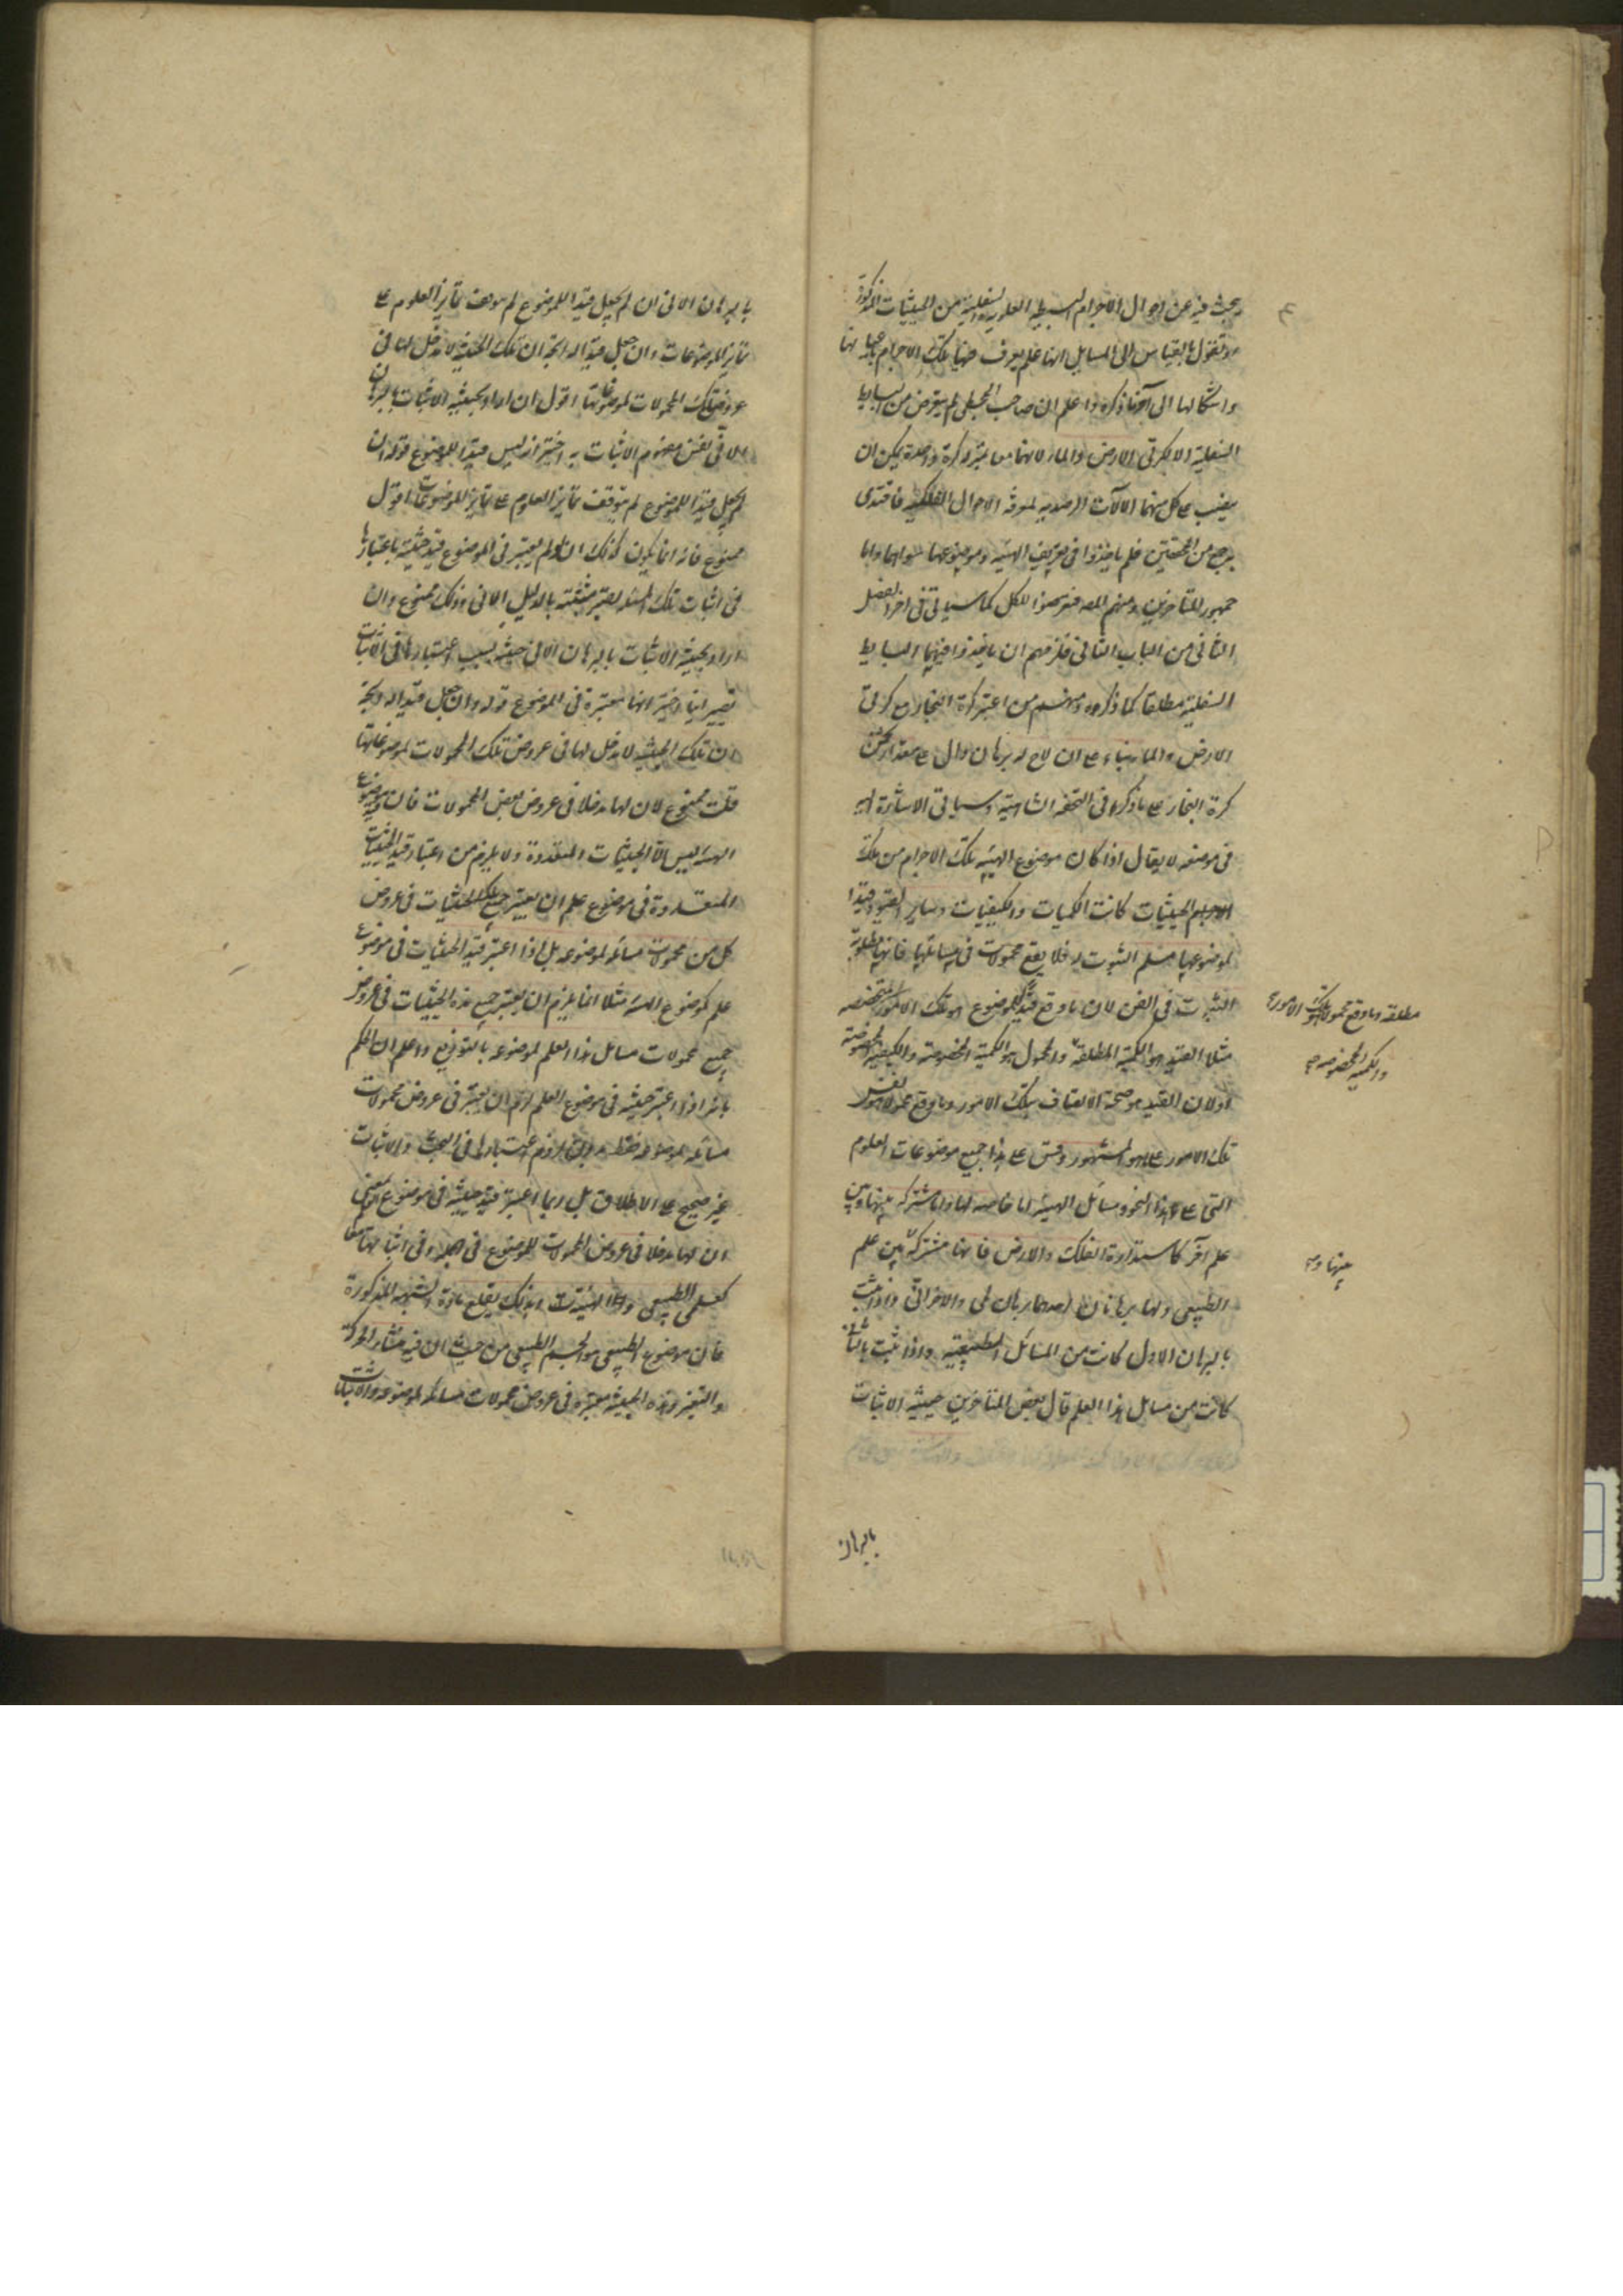 يبحث فيه عن احوال الاجرام البسيطة العلوية والسفلية من الحيثيات المذكورة
وتقول بالقياس الى المسايل انها علم يعرف منها تلك الاجرام
واشكالها الى آخر ما ذكره واعلم ان صاحب المجسطى لم يتعرض من البسايط
السفلية الا لكرتى الارض والماء لانهما بمنزلة كرة واحدة يمكن ان
ينصب على كل منهما الآلات الرصدية لمعرفة الاحوال الفلكية فاقتدى
به جمع من المحققين فلم ياخذوا فى تعريف الهيئة وموضوعها سواهما واما
جمهور المتاخرين ومنهم المص فتعرضوا للكل كما سياتى فى آخر الفصل
الثانى من الباب الثانى فلزمهم ان ياخذوا فيهما البسايط
السفلية مطلقا كما ذكروه ومنهم من اعتبر كرة البخار مع كرتى
الارض والماء بناء على ان لاح له برهان دال على مقدار ثخن
كرة البخار على ما ذكره فى التحفة الشاهية وسياتى الاشارة اليه
فى موضعه لا يقال اذا كان موضوع الهيئة تلك الاجرام من تلك
الحيثيات كانت الكميات والكيفيات وساير القيود قيدا
لموضوعها مسلم الثبوت له فلا يقع محمولات فى مسائلها فانها مطلوبة
الثبوت فى الفن لان ما وقع قيدا للموضوع هو تلك الامور
مطلقة وما وقع محمولا هو تلك الامور
مثلا القيد هو الكمية المطلقة والمحمول هو الكمية المخصوصة والكيفية المخصوصة
والكمية المخصوصة
اولان القيد هو صحة الاتصاف بتلك الامور وما وقع محمولا هو نفس
تلك الامور على ما هو المشهور وقس على هذا جميع موضوعات العلوم
التى على هذا النحو ومسائل الهيئة اما خاصة لها واما مشتركة بينها وبين
علم آخر كاستدارة الفلك والارض فانها مشتركة بين علم
بينها و
الطبيعى ولها برهانان احدهما برهان لمى والاخر انى واذا اثبت
بالبرهان الاول كانت من المسائل الطبيعية واذا ثبت بالثانى
كانت من مسايل هذا العلم قال بعض المتاخرين حيثية الاثبات
بالبرهان
بالبرهان الانى ان لم يجعل قيدا للموضوع لم يتوقف تمايز العلوم على
تمايز الموضوعات وان جعل قيدا له اتجه ان تلك الحيثية لا مدخل لها فى
عروض تلك المحمولات لموضوعاتها اقول ان اراد بحيثية الاثبات بالبرهان
الانى نفس مفهوم الاثبات به اختير انه ليس قيدا للموضوع قوله ان
لم يجعل قيدا للموضوع لم يتوقف تمايز العلوم على تمايز الموضوعات اقول
ممنوع فانه انما يكون كذلك ان لو لم يعتبر فى الموضوع قيد حيثية باعتبارها
فى اثبات تلك المسئلة يصير مثبتة بالدليل الانى وذلك ممنوع وان
اراد بحيثية الاثبات بالبرهان الانى حيثية بسبب اعتبارها فى الاثبات
تصير انيا اختير انها معتبرة فى الموضوع قوله وان جعل قيدا له اتجه
ان تلك الحيثية لا مدخل لها فى عروض تلك المحمولات لموضوعاتها
قلت ممنوع لان لها مدخلا فى عروض بعض المحمولات فان قيد موضوع
الهيئة ليس الا الحيثيات المتعددة ولا يلزم من اعتبار قيد الحيثيات
المتعددة فى موضوع علم ان يعتبر جميع تلك الحيثيات فى عروض
كل من محمولات مسائله لموضوعه بل اذا اعتبر قيد الحيثيات فى موضوع
علم كموضوع الهيئة مثلا انما يلزم ان يعتبر جميع هذه الحيثيات فى عروض
جميع محمولات مسائل هذا العلم لموضوعه بالتوزيع واعلم ان الحكم
بانه اذا اعتبر حيثية فى موضوع العلم لزم ان يعتبر فى عروض محمولات
مسائله لموضوعه فقط بدون لزوم اعتبارها فى البحث والاثبات
غير صحيح على الاطلاق بل ربما اعتبر قيد حيثية فى موضوع العلم بمعنى
ان لها مدخلا فى عروض المحمولات للموضوع فى جمله وفى اثباتها معا
كعلمى الطبيعى والهيئة وبذلك ينقلع مادة الشبهة المذكورة
فان موضوع الطبيعى هو الجسم الطبيعى من حيث ان فيه منشاء الحركة
والتغير وهذه الحيثية معتبرة فى عروض محمولات مسائله لموضوعه والاثبات